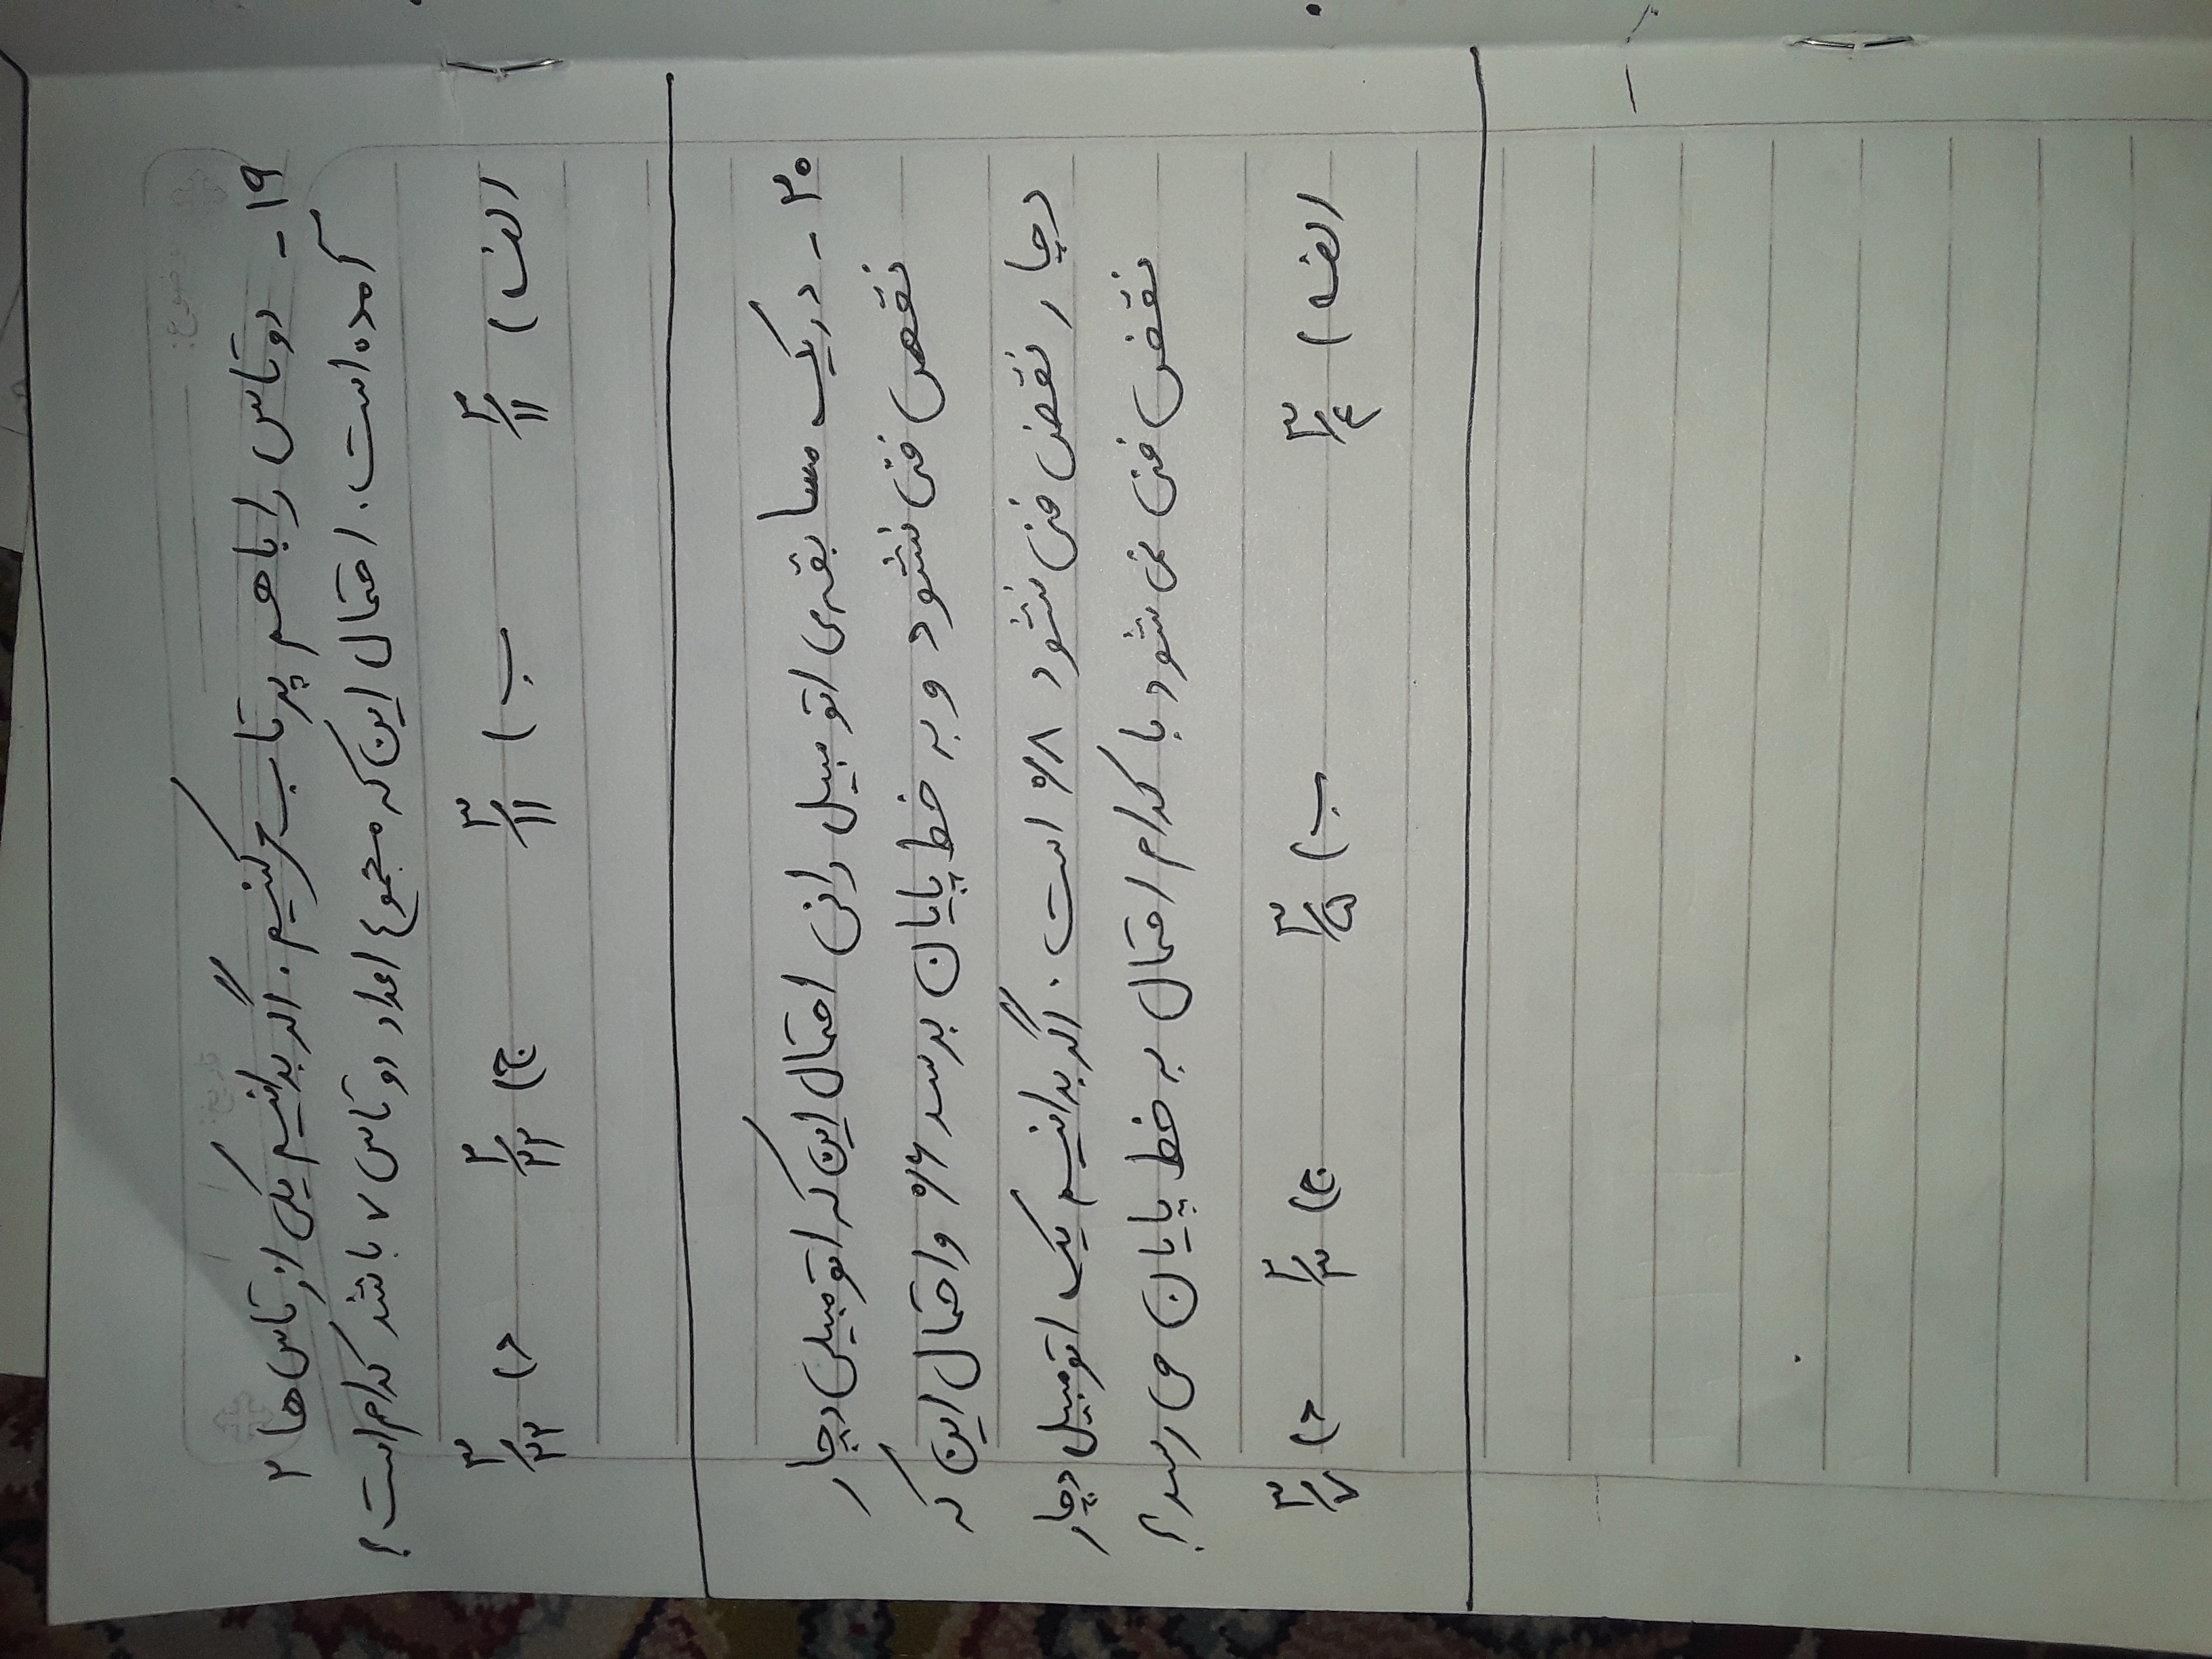 ۱۹ - دو تاس را با هم پرتاب می‌کنیم. اگر بدانیم یکی از تاس ها ۲
آمده است. احتمال این که مجموع اعداد دو تاس ۷ باشد کدام است؟
الف) ۲/۱۱ ب) ۳/۱۱ ج) ۲/۲۲ د) ۳/۲۲
۲۰ - در یک مسابقه‌ی اتومبیل رانی احتمال این که اتومبیلی دچار
نقص فنی نشود و به خط پایان برسد ۰/۶ و احتمال این که
دچار نقض فنی نشود ۰/۸ است. اگر بدانیم یک اتومبیل دچار
نقض فنی نمی شود با کدام احتمال به خط پایان می رسد؟
الف) ۳/۴ ب) ۳/۵ ج) ۲/۳ د) ۳/۷